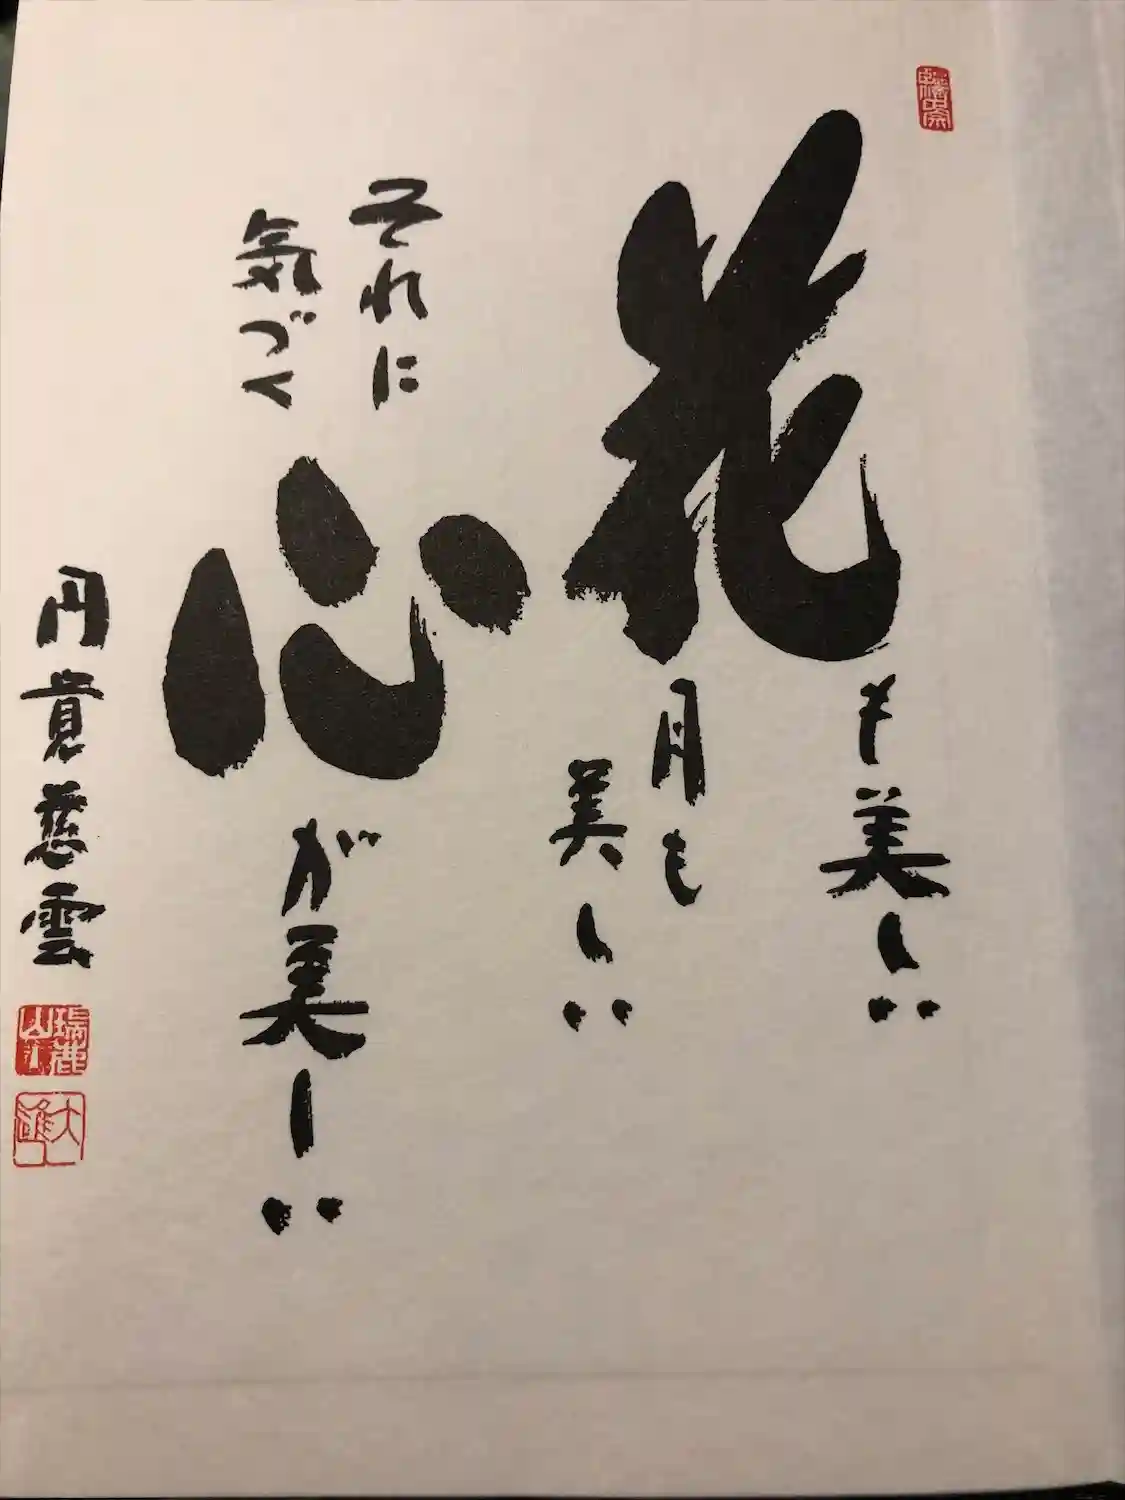 花も美しい
月も
美しい
それに
気づく
心が美しい
円覚慈雲
瑞鹿山